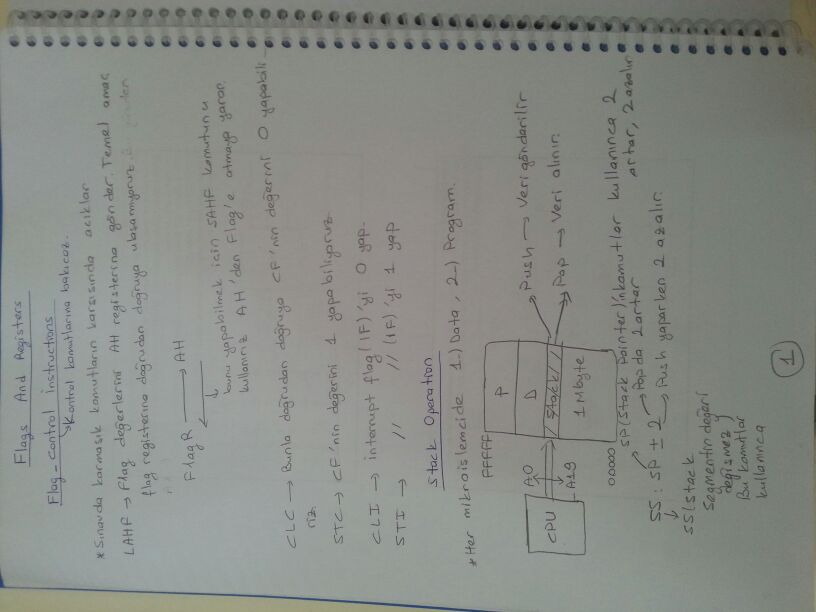 Flags And Registers
Flag-control instructions
↳ Kontrol komutlarına bakıcaz.
* Sınavda karmaşık komutların karşısında açıkları
LAHF → Flag değerlerini AH registerına gönder. Temel amaç,
flag registerına doğrudan doğruya ulaşamıyoruz.
FlagR → AH
bunu yapabilmek için SAHF komutunu
kullanırız AH'den Flag'e atmaya yarar.
CLC → Bunla doğrudan doğruya CF'nin değerini 0 yapabili-
riz.
STC → CF'nin değerini 1 yapabiliyoruz
CLI → interrupt flag(IF)'yi 0 yap.
STI → // // (IF)'yi 1 yap
Stack Operation
* Her mikroişlemcide 1-) Data, 2-) Program.
FFFFF
P
D
Stack
1 Mbyte
00000
CPU
A0
A19
Push → Veri gönderilir
Pop → Veri alınır.
SP(Stack Pointer)'ın komutlar kullanınca 2
artar, 2 azalır
SS : SP ± 2 → Pop da 2 artar
→ Push yaparken 2 azalır.
SS(Stack
Segmentin değeri
değişmez)
Bu komutlar
kullanınca
1